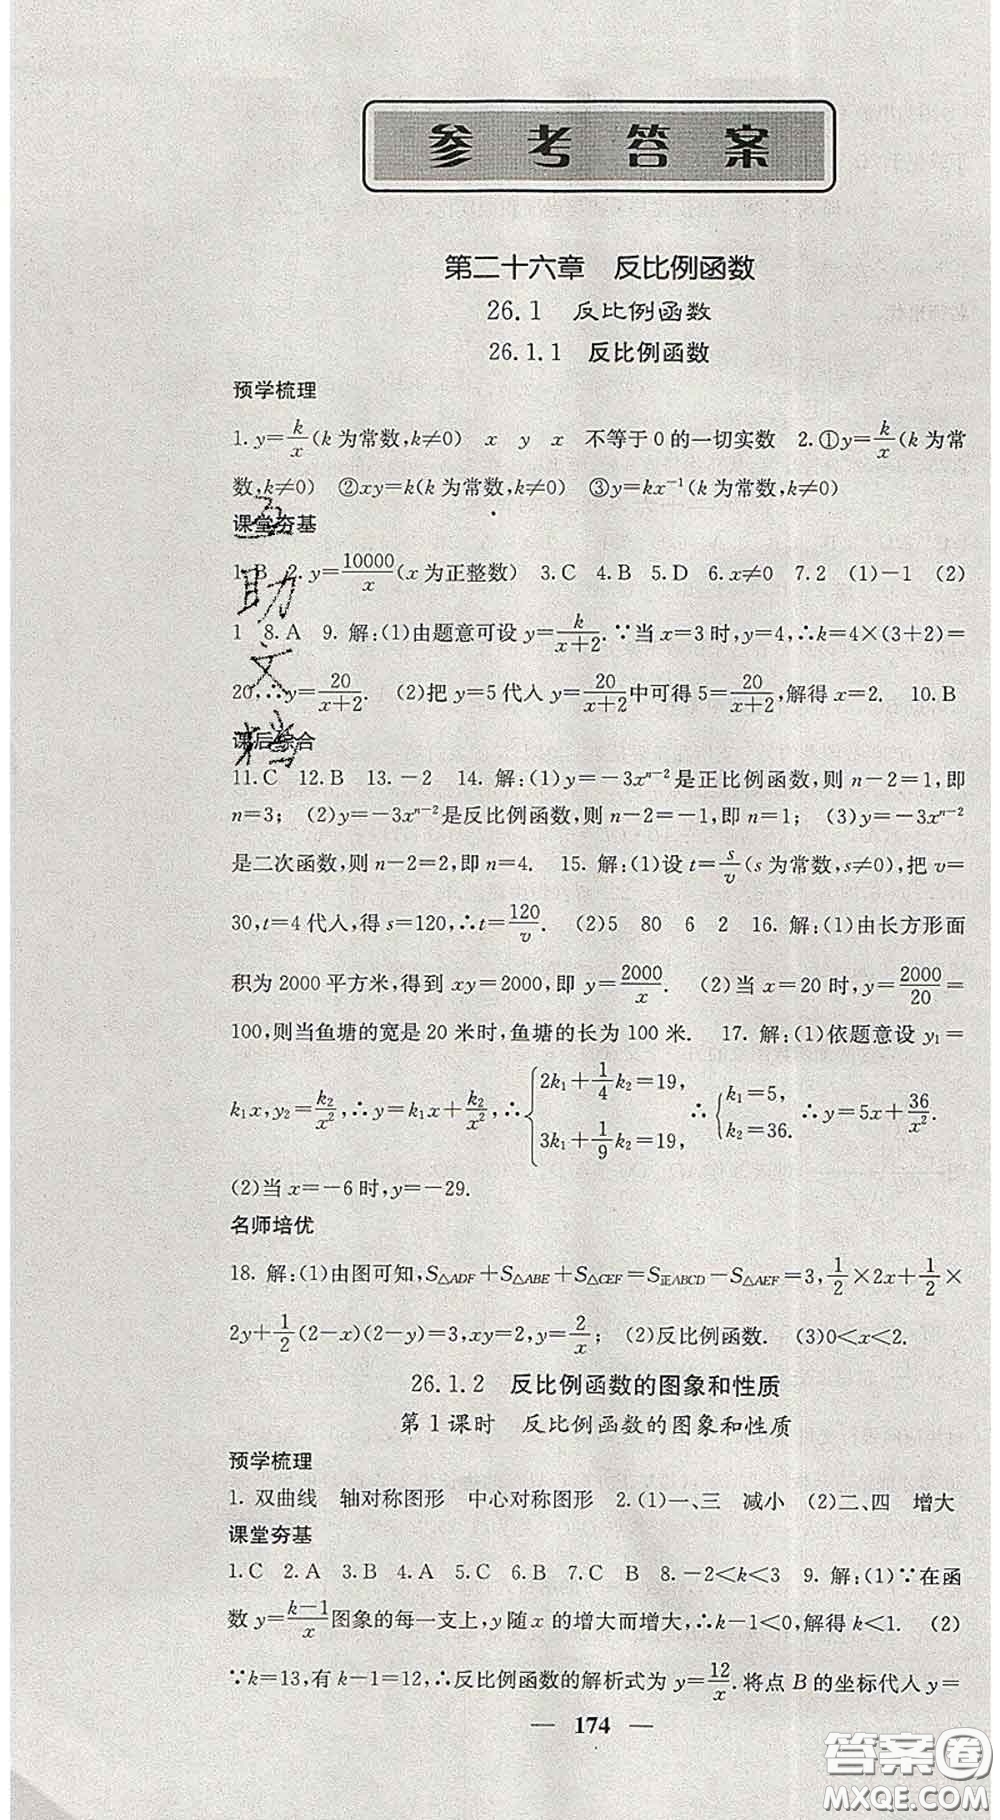 参考答案
第二十六章　反比例函数
26.1　反比例函数
26.1.1　反比例函数
预学梳理
1. y=k/x(k 为常数,k≠0)　x　y　x　不等于 0 的一切实数　2. ①y=k/x(k 为常
数,k≠0)　②xy=k(k 为常数,k≠0)　③y=kx⁻¹(k 为常数,k≠0)
课堂夯基
1. B　2. y=10000/x(x 为正整数)　3. C　4. B　5. D　6. x≠0　7. 2　(1)-1　(2)
1　8. A　9. 解:(1)由题意可设 y=k/(x+2).∵当 x=3 时,y=4,∴k=4×(3+2)=
20,∴y=20/(x+2).　(2)把 y=5 代入 y=20/(x+2)中可得 5=20/(x+2),解得 x=2.　10. B
课后综合
11. C　12. B　13. -2　14. 解:(1)y=-3xⁿ⁻²是正比例函数,则 n-2=1,即
n=3;　(2)y=-3xⁿ⁻²是反比例函数,则 n-2=-1,即 n=1;　(3)y=-3xⁿ⁻²
是二次函数,则 n-2=2,即 n=4.　15. 解:(1)设 t=s/v(s 为常数,s≠0),把 v=
30,t=4 代入,得 s=120,∴t=120/v.　(2)5　80　6　2　16. 解:(1)由长方形面
积为 2000 平方米,得到 xy=2000,即 y=2000/x.　(2)当 x=20 时,y=2000/20=
100,则当鱼塘的宽是 20 米时,鱼塘的长为 100 米.　17. 解:(1)依题意设 y₁=
k₁x,y₂=k₂/x²,∴y=k₁x+k₂/x²,∴{2k₁+1/4k₂=19, 3k₁+1/9k₂=19, ∴{k₁=5, k₂=36. ∴y=5x+36/x².
(2)当 x=-6 时,y=-29.
名师培优
18. 解:(1)由图可知,S△ADF+S△ABE+S△CEF=S正ABCD-S△AEF=3,1/2×2x+1/2×
2y+1/2(2-x)(2-y)=3,xy=2,y=2/x;　(2)反比例函数.　(3)0<x<2.
26.1.2　反比例函数的图象和性质
第 1 课时　反比例函数的图象和性质
预学梳理
1. 双曲线　轴对称图形　中心对称图形　2. (1)一、三　减小　(2)二、四　增大
课堂夯基
1. C　2. A　3. B　4. A　5. C　6. B　7. C　B　8. -2<k<3　9. 解:(1)∵在函
数 y=(k-1)/x图象的每一支上,y 随 x 的增大而增大,∴k-1<0,解得 k<1.　(2)
∵k=13,有 k-1=12,∴反比例函数的解析式为 y=12/x. 将点 B 的坐标代入 y=
— 174 —
互助文档
答案圈
MXQE.COM